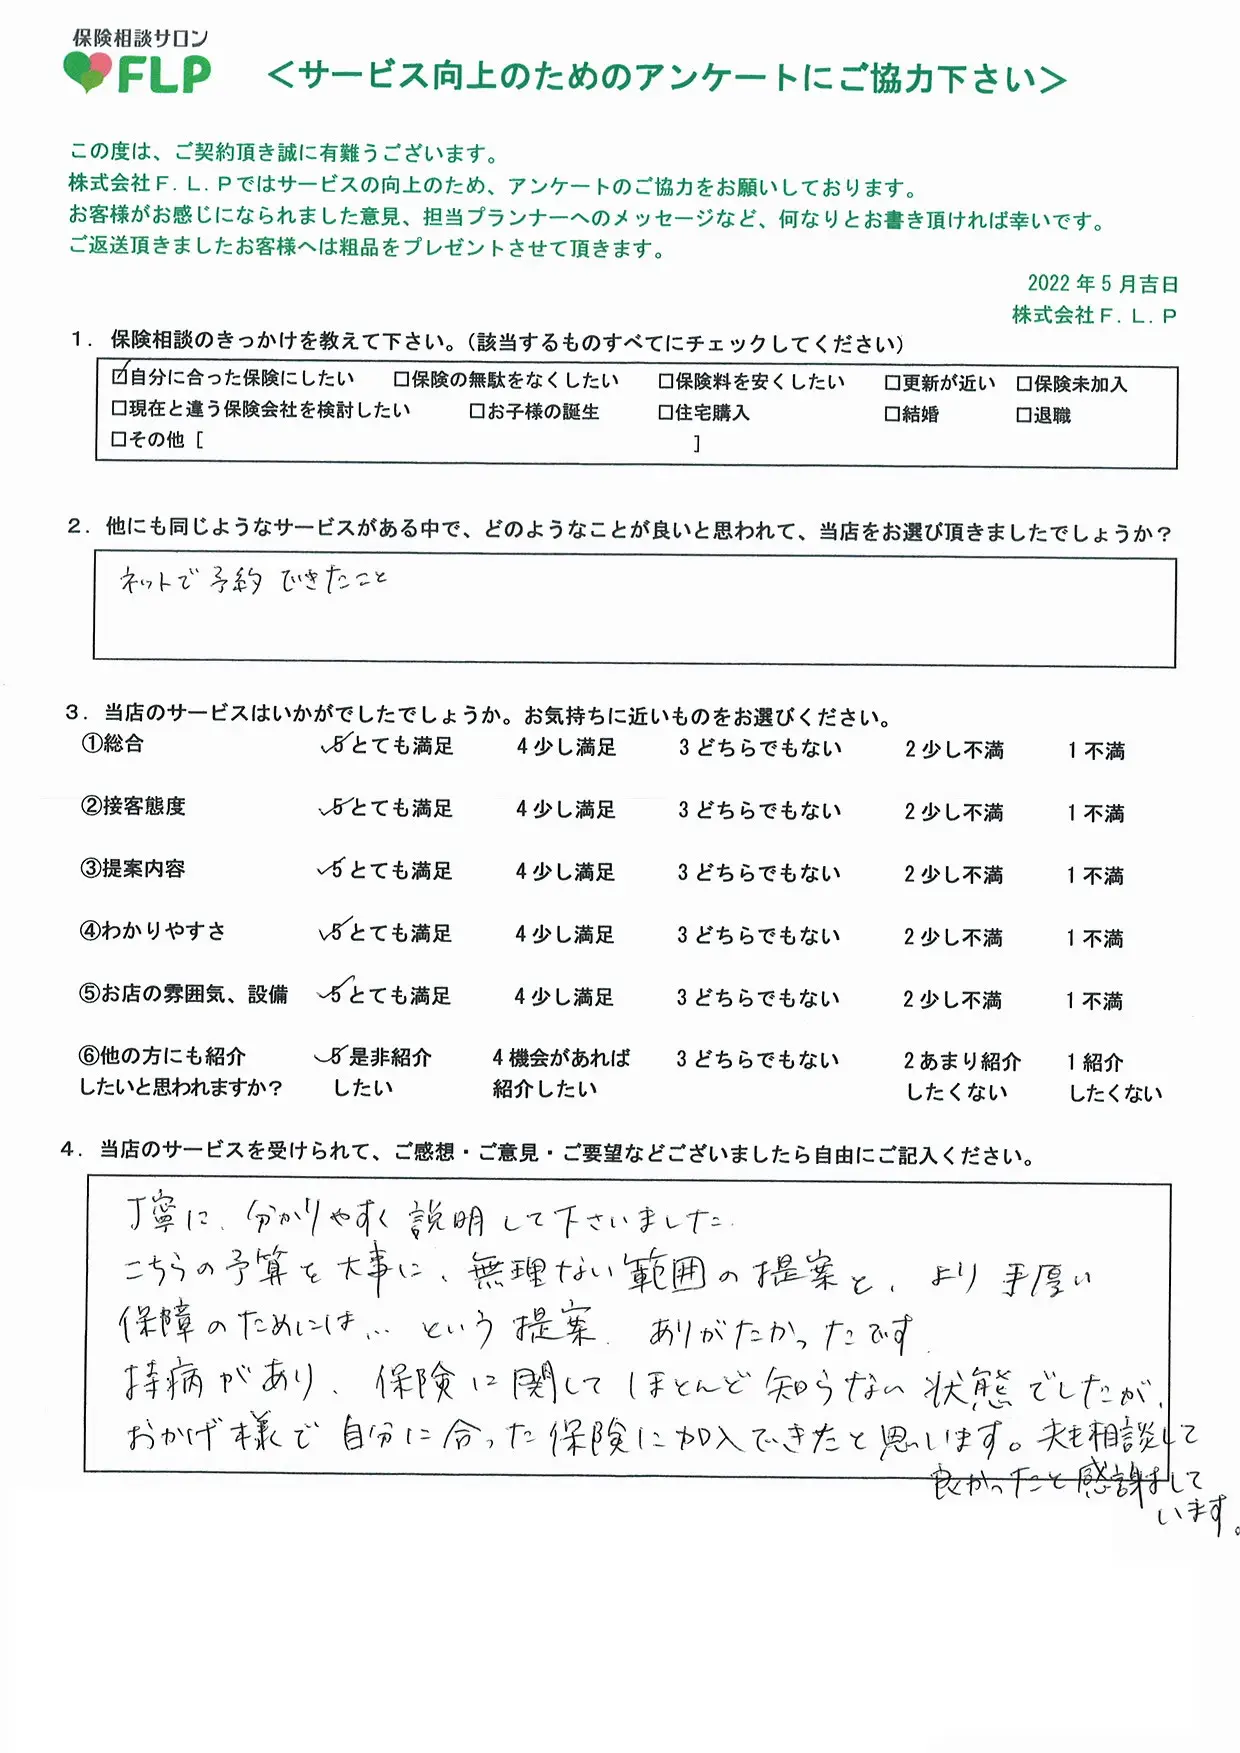 保険相談サロン
FLP
＜サービス向上のためのアンケートにご協力下さい＞
この度は、ご契約頂き誠に有難うございます。
株式会社Ｆ．Ｌ．Ｐではサービスの向上のため、アンケートのご協力をお願いしております。
お客様がお感じになられました意見、担当プランナーへのメッセージなど、何なりとお書き頂ければ幸いです。
ご返送頂きましたお客様へは粗品をプレゼントさせて頂きます。
2022年5月吉日
株式会社Ｆ．Ｌ．Ｐ
１．保険相談のきっかけを教えて下さい。（該当するものすべてにチェックしてください）
☑自分に合った保険にしたい □保険の無駄をなくしたい □保険料を安くしたい □更新が近い □保険未加入
□現在と違う保険会社を検討したい □お子様の誕生 □住宅購入 □結婚 □退職
□その他［ ］
２．他にも同じようなサービスがある中で、どのようなことが良いと思われて、当店をお選び頂きましたでしょうか？
ネットで予約できたこと
３．当店のサービスはいかがでしたでしょうか。お気持ちに近いものをお選びください。
①総合 ✓5とても満足 4少し満足 3どちらでもない 2少し不満 1不満
②接客態度 ✓5とても満足 4少し満足 3どちらでもない 2少し不満 1不満
③提案内容 ✓5とても満足 4少し満足 3どちらでもない 2少し不満 1不満
④わかりやすさ ✓5とても満足 4少し満足 3どちらでもない 2少し不満 1不満
⑤お店の雰囲気、設備 ✓5とても満足 4少し満足 3どちらでもない 2少し不満 1不満
⑥他の方にも紹介 ✓5是非紹介 4機会があれば 3どちらでもない 2あまり紹介 1紹介
したいと思われますか？ したい 紹介したい したくない したくない
４．当店のサービスを受けられて、ご感想・ご意見・ご要望などございましたら自由にご記入ください。
丁寧に、分かりやすく説明して下さいました。
こちらの予算を大事に、無理ない範囲の提案と、より手厚い
保障のためには… という提案、ありがたかったです
持病があり、保険に関してほとんど知らない状態でしたが、
おかげ様で自分に合った保険に加入できたと思います。夫も相談して
良かったと感謝して
います。